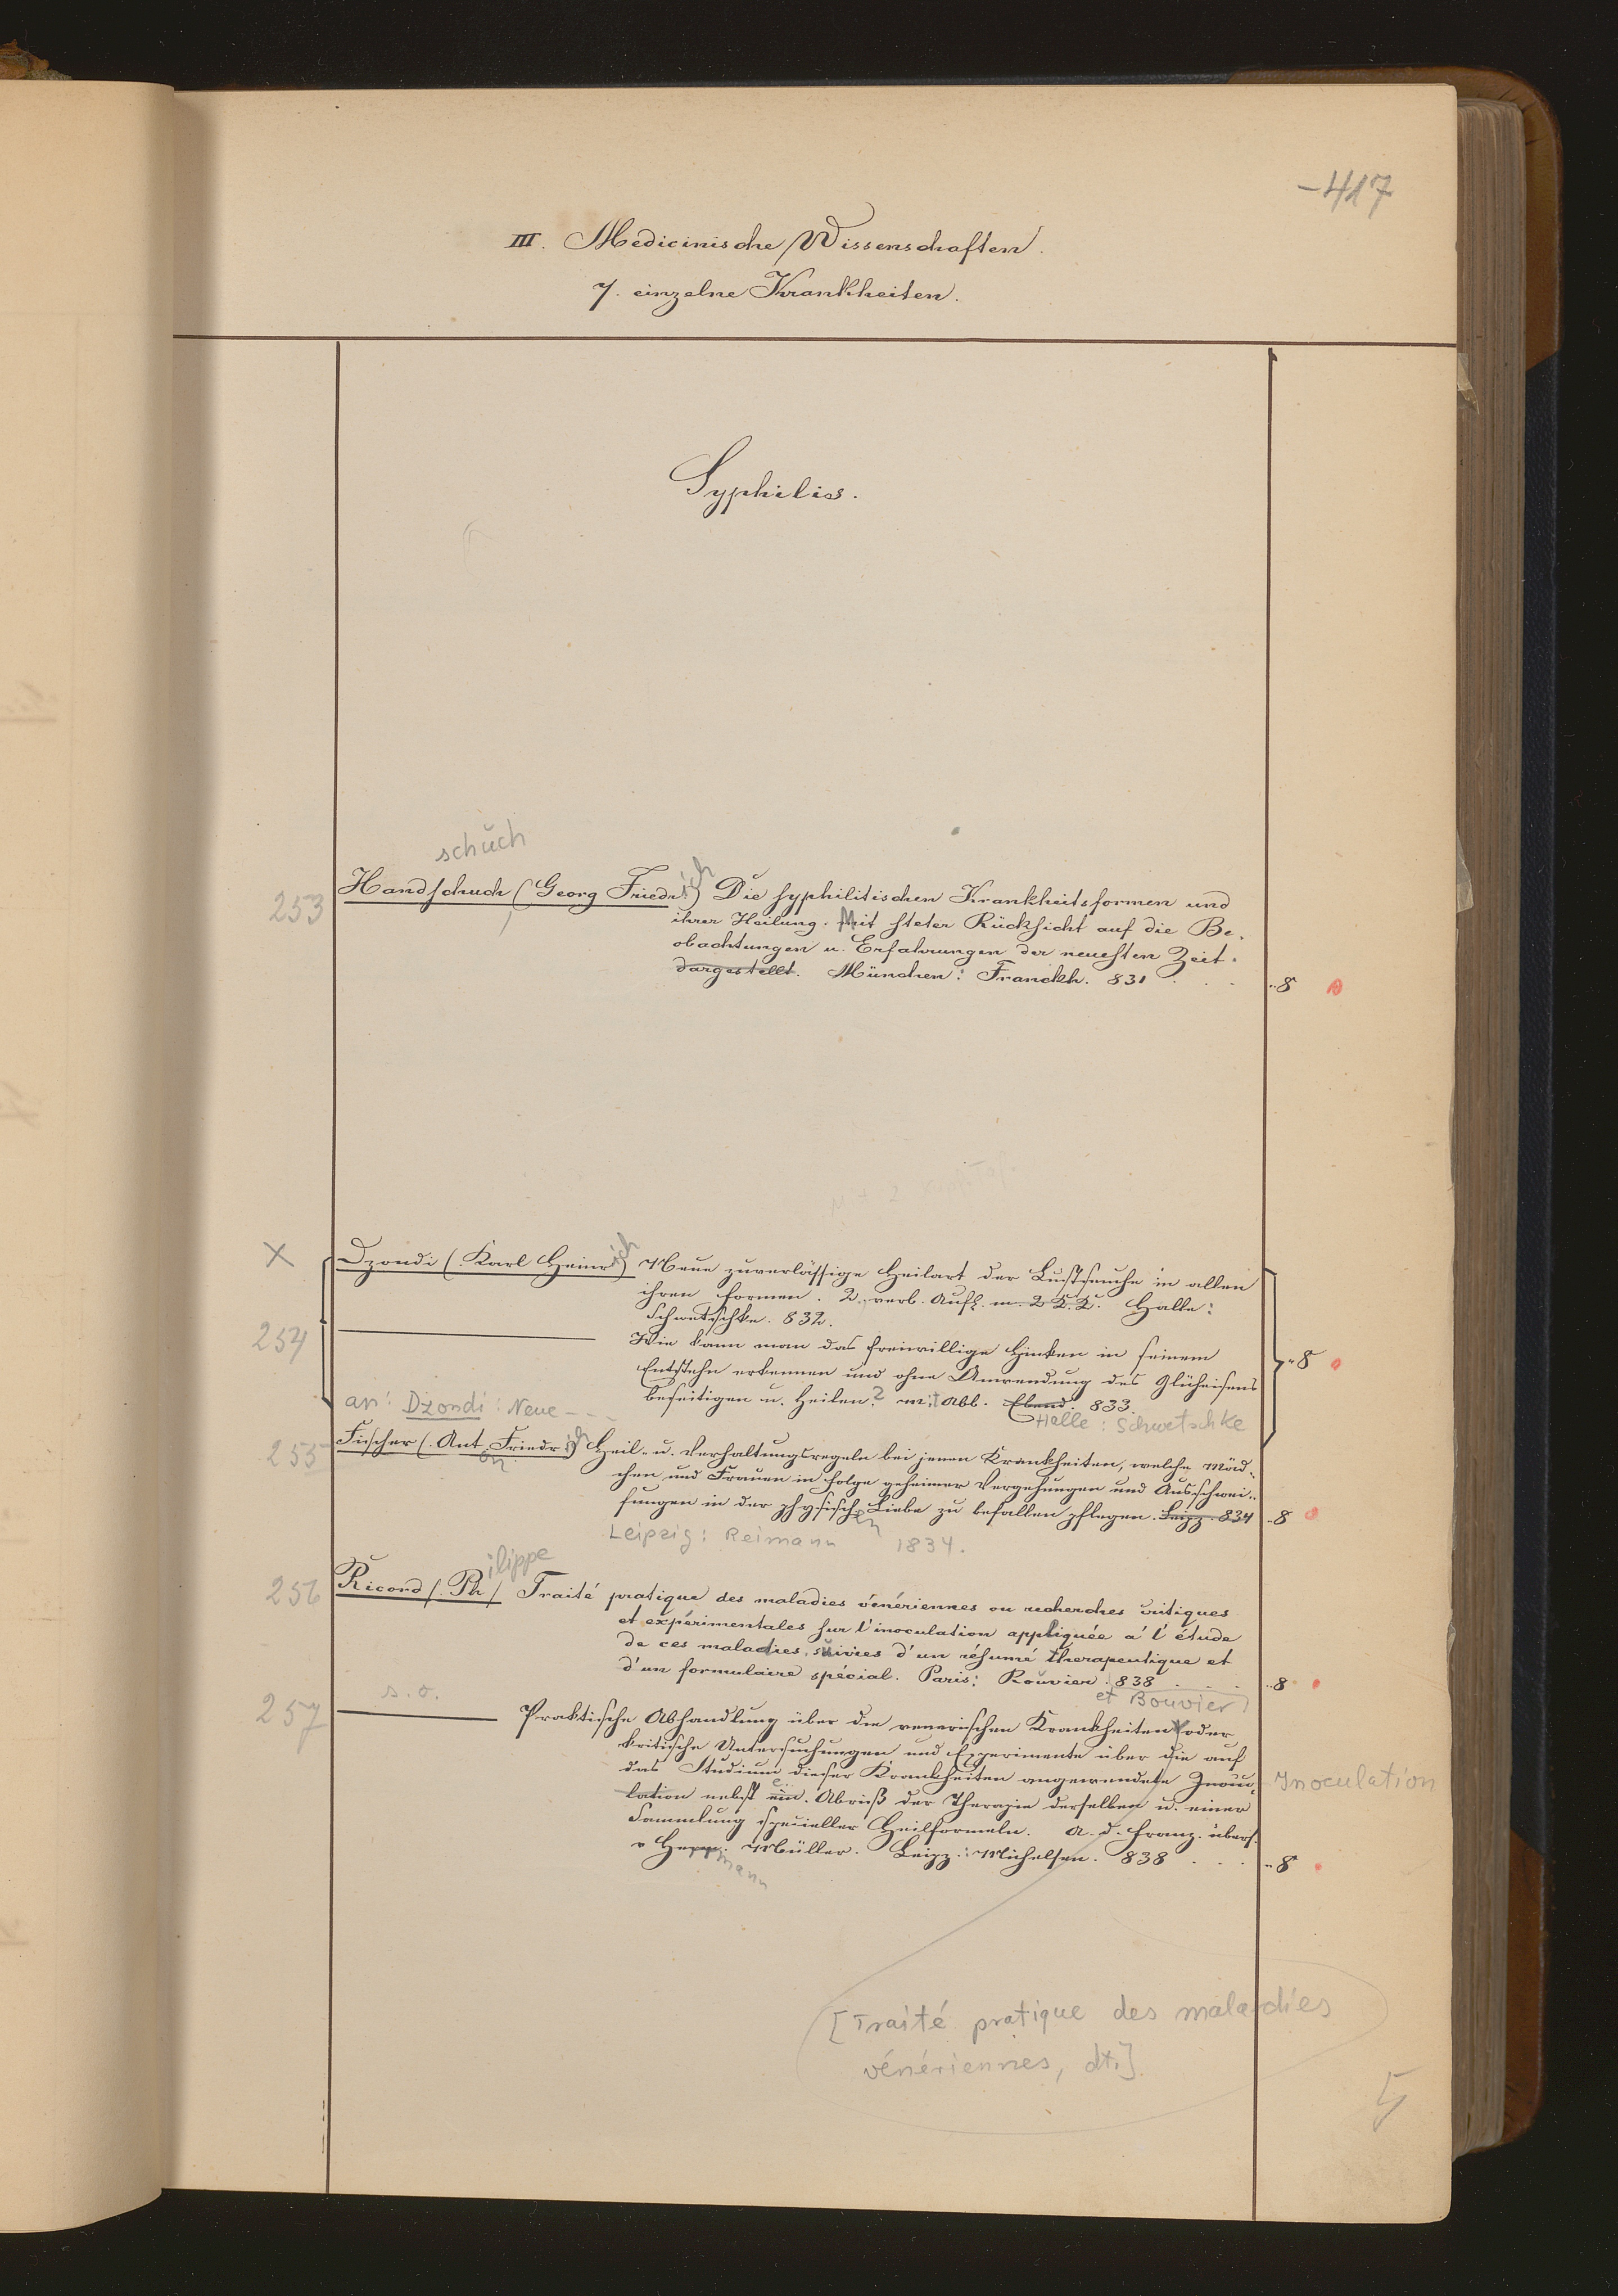 -417
III. Medicinische Wissenschaften.
7. einzelne Krankheiten.
Syphilis.
schuch
253 Handschuch (Georg Friedrich) Die syphilitischen Krankheitsformen und
ihrer Heilung. Mit steter Rücksicht auf die Be-
obachtungen u. Erfahrungen der neuesten Zeit.
dargestellt. München: Franckh. 831 . . . "8
X Dzondi (Karl Heinrich) Neue zuverlässige Heilart der Lustseuche in allen
ihren Formen. 2. verb. Aufl. m. 2 K.K. Halle:
Schwetschke. 832.
254 Wie kann man das freiwillige Hinken in seinem
Entstehn erkennen und ohne Anwendung des Glüheisens "8
beseitigen u. heilen? mit Abb. Ebend. 833.
an: Dzondi: Neue - - - Halle: Schwetschke
255 Fischer (Anton Friedrich) Heil- u. Verhaltungsregeln bei jenen Krankheiten, welche Mäd-
chen und Frauen in Folge geheimer Vergehungen und Ausschwei-
fungen in der physischen Liebe zu befallen pflegen. Leipz. 834 "8
Leipzig: Reimann 1834.
ilippe
256 Ricord (Ph) Traité pratique des maladies vénériennes ou recherches critiques
et expérimentales sur l'inoculation appliquée a' l'étude
de ces maladies, suivies d'un résumé therapeutique et
d'un formulaire spécial. Paris: Rouvier 838 . . . "8
s. o. et Bouvier
257 Praktische Abhandlung über die venerischen Krankheiten oder
kritische Untersuchungen und Experimente über die auf
das Studium dieser Krankheiten angewendete Inocu- Inoculation
lation nebst ein. Abriß der Therapie derselben u. einer
Sammlung specieller Heilformeln. A. d. Franz. übers.
v Herrmann Müller. Leipz.: Michelsen. 838 . . . "8
[Traité pratique des maladies
vénériennes, dt.]
5